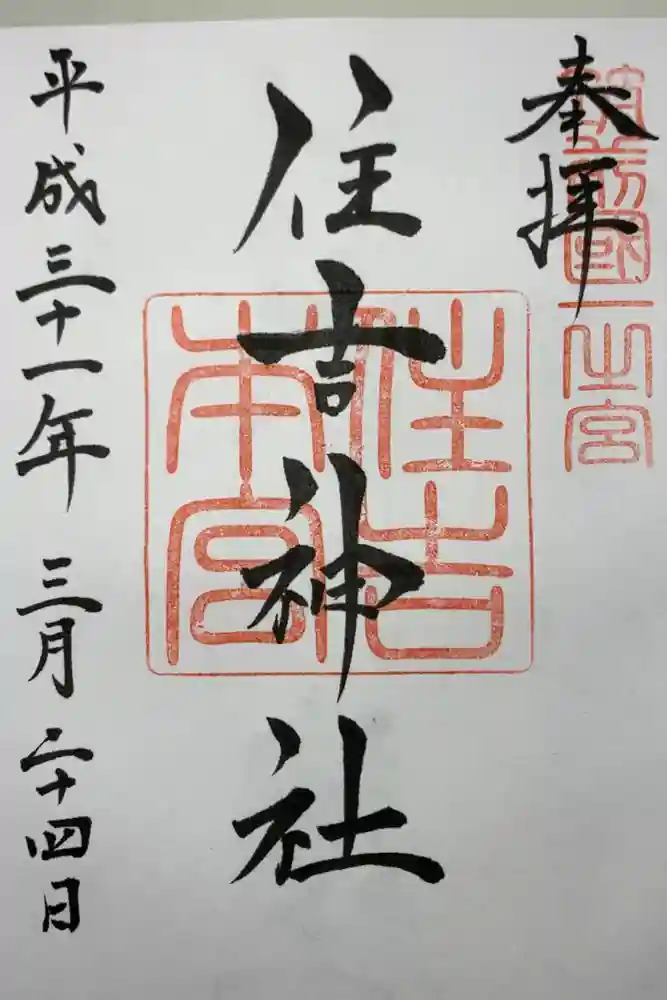 奉拝
筑前國一之宮
住吉神社
住吉本宮
平成三十一年 三月 二十四日